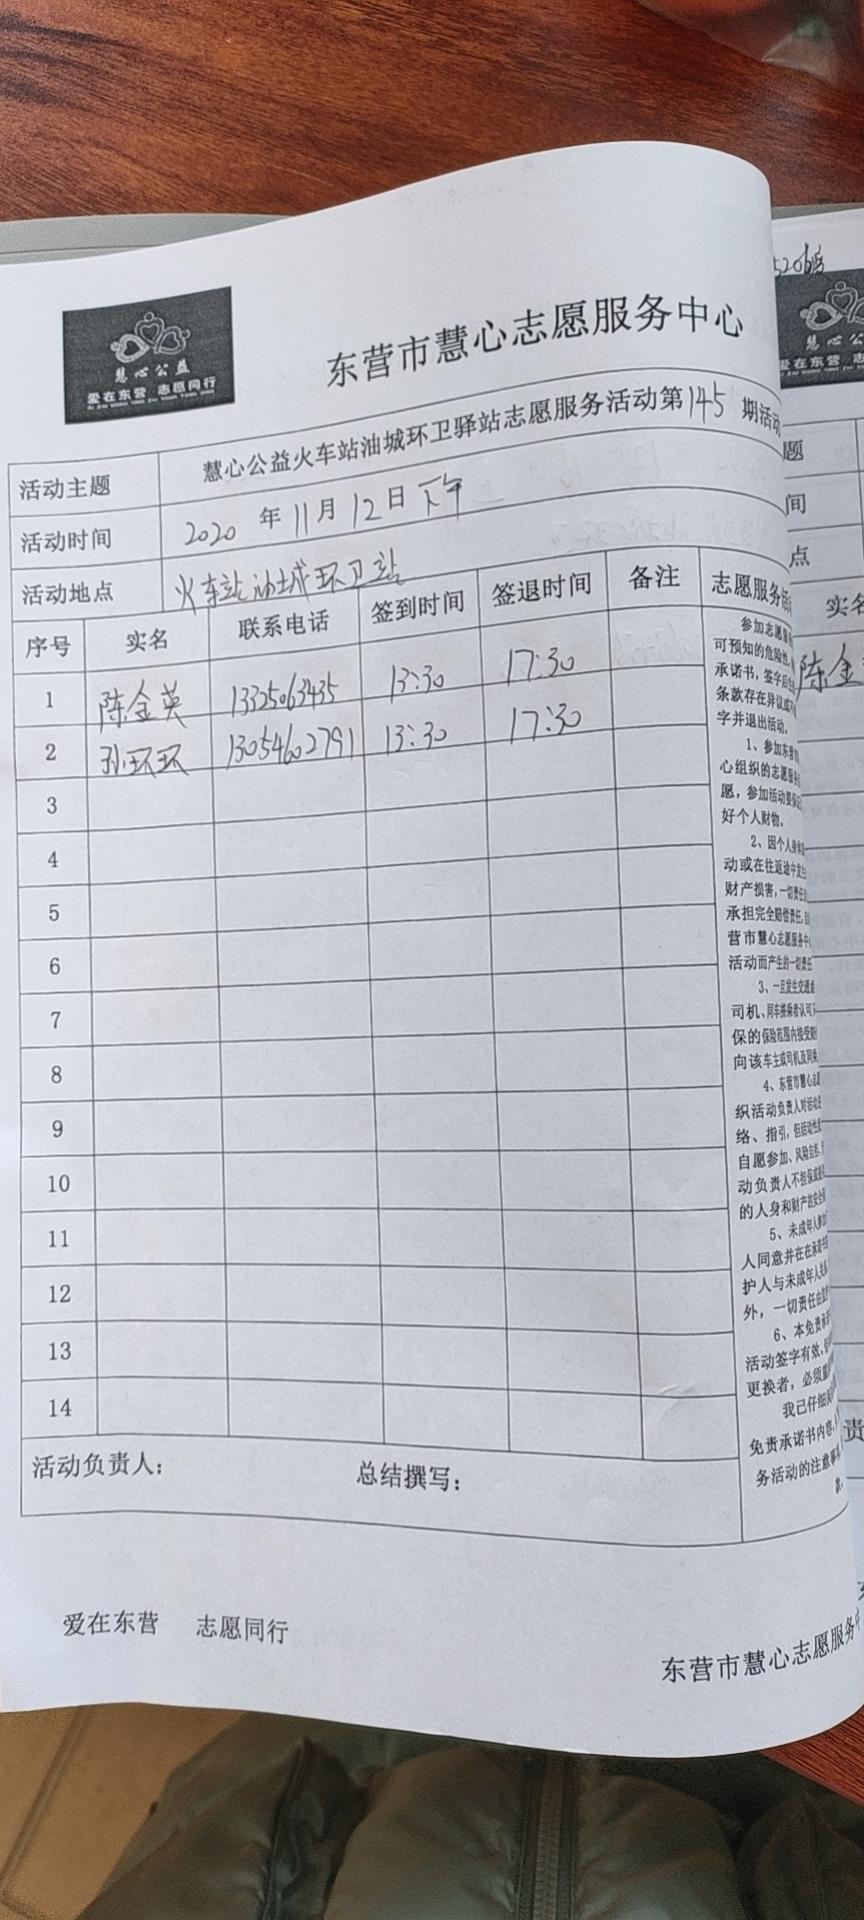 慧心公益
爱在东营 志愿同行
东营市慧心志愿服务中心
活动主题 慧心公益火车站油城环卫驿站志愿服务活动第145期活动
活动时间 2020年11月12日下午
活动地点 火车站油城环卫站
序号 实名 联系电话 签到时间 签退时间 备注 志愿服务活
1 陈金英 13325063435 13:30 17:30
2 孙环环 13054602791 13:30 17:30
3
4
5
6
7
8
9
10
11
12
13
14
参加志愿服
可预知的危险性,
承诺书,签字后
条款存在异议或
字并退出活动。
1、参加东营
心组织的志愿服务
愿,参加活动要保
好个人财物。
2、因个人身
动或在往返途中发生
财产损害,一切责任
承担完全赔偿责任,
营市慧心志愿服务中
活动而产生的一切责任
3、一旦发生交通
司机、同车搭乘者认可
保的保险范围内接受赔
向该车主或司机及同乘
4、东营市慧心志愿
织活动负责人对活动
络、指引,但活动性
自愿参加、风险自担,
动负责人不担保或
的人身和财产的安全
5、未成年人参加
人同意并在在承诺书
护人与未成年人关系
外,一切责任由监护
6、本免责承诺
活动签字有效,
更换者,必须重
我已仔细
免责承诺书内容,
务活动的注意事
活动负责人: 总结撰写:
爱在东营 志愿同行
东营市慧心志愿服务
5206
慧心公
爱在东营 志
题
间
点
实名
陈金
责